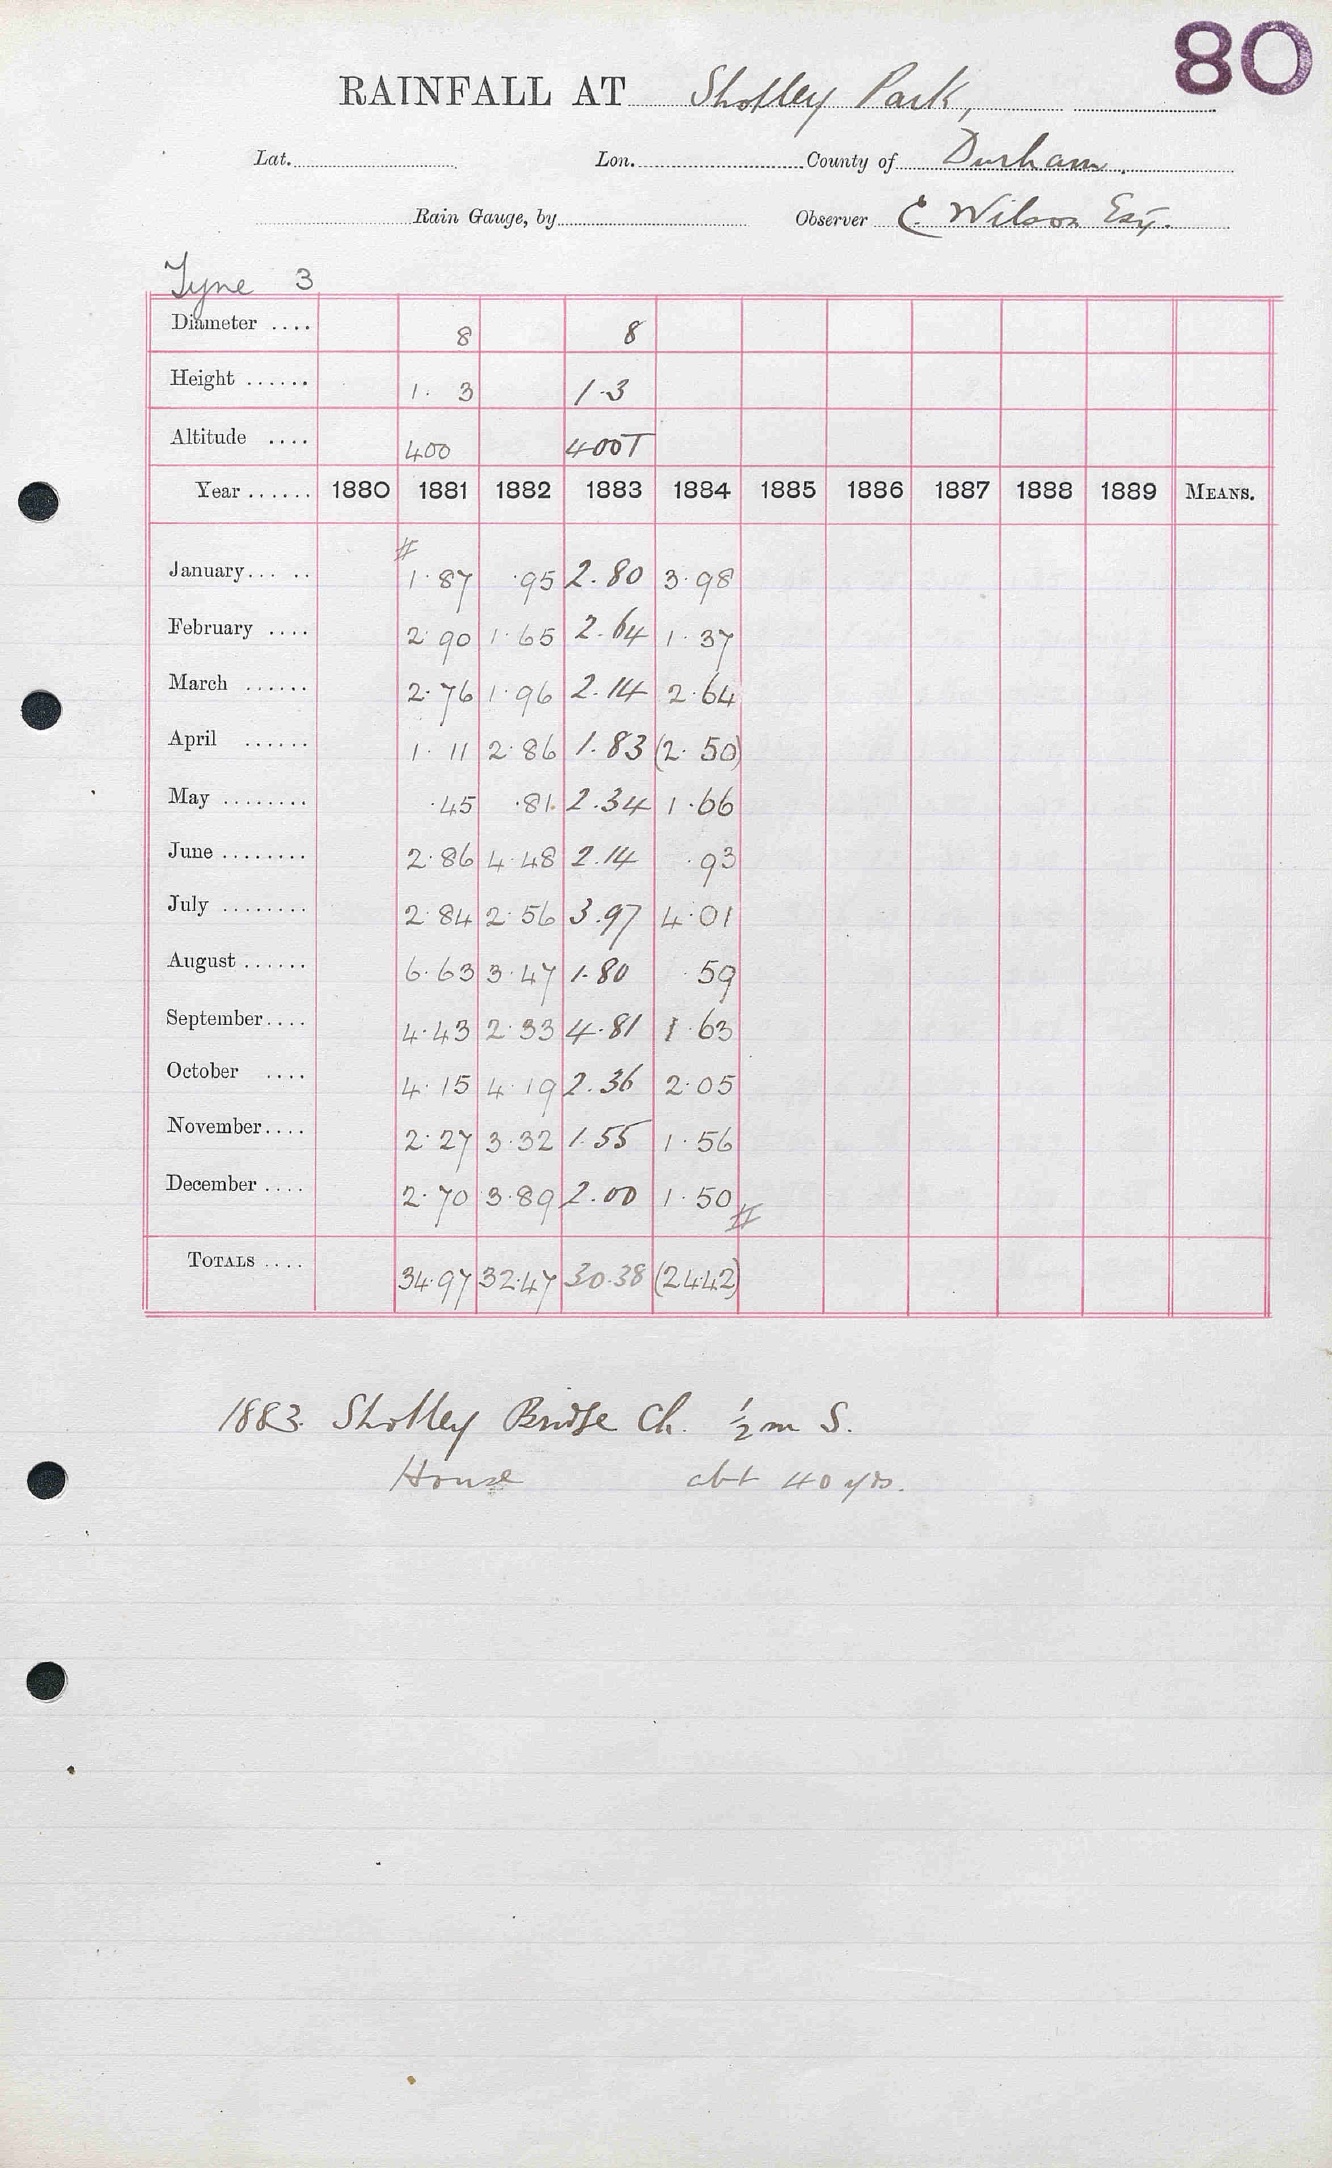 80
RAINFALL AT Shotley Park,
Lat. Lon. County of Durham.
Rain Gauge, by Observer E. Wilson Esq.
Tyne 3
Diameter .... 8 8
Height ...... 1. 3 1.3
Altitude .... 400 400T
Year ...... 1880 1881 1882 1883 1884 1885 1886 1887 1888 1889 MEANS.
#
January... .. 1.87 .95 2.80 3.98
February .... 2.90 1.65 2.64 1.37
March ...... 2.76 1.96 2.14 2.64
April ...... 1.11 2.86 1.83 (2.50)
May ........ .45 .81 2.34 1.66
June ........ 2.86 4.48 2.14 .93
July ........ 2.84 2.56 3.97 4.01
August ...... 6.63 3.47 1.80 .59
September.... 4.43 2.33 4.81 1.63
October .... 4.15 4.19 2.36 2.05
November.... 2.27 3.32 1.55 1.56
December .... 2.70 3.89 2.00 1.50
#
TOTALS .... 34.97 32.47 30.38 (24.42)
1883. Shotley Bridge Ch. ½ m S.
House abt 40 yds.